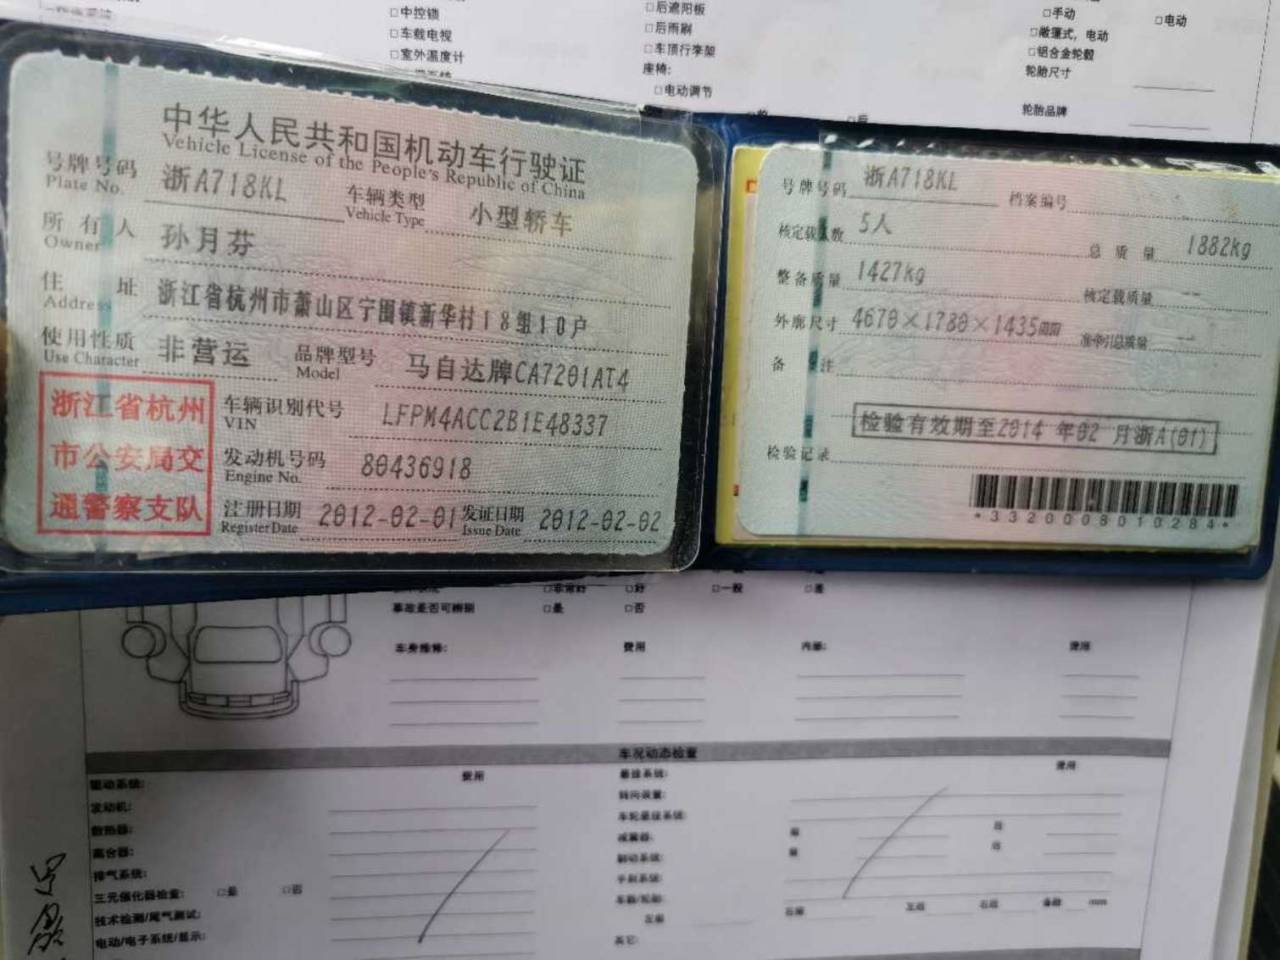 □中控锁
□车载电视
□室外温度计
□后遮阳板
□后雨刷
□车顶行李架
座椅:
□电动调节
□手动
□电动
□敞篷式，电动
□铝合金轮毂
轮胎尺寸
轮胎品牌
中华人民共和国机动车行驶证
Vehicle License of the People's Republic of China
号牌号码 浙A718KL 车辆类型 小型轿车
Plate No. Vehicle Type
所有人 孙月芬
Owner
住址 浙江省杭州市萧山区宁围镇新华村18组10户
Address
使用性质 非营运 品牌型号 马自达牌CA7201AT4
Use Character Model
浙江省杭州
市公安局交
通警察支队
车辆识别代号 LFPM4ACC2B1E48337
VIN
发动机号码 80436918
Engine No.
注册日期 2012-02-01 发证日期 2012-02-02
Register Date Issue Date
号牌号码 浙A718KL 档案编号
核定载人数 5人 总质量 1882kg
整备质量 1427kg 核定载质量 --
外廓尺寸 4670×1780×1435mm 准牵引总质量 --
备注
检验有效期至2014年02月浙A(01)
检验记录
*3320008010284*
事故是否可辨别 □是 □否
□非常好 □好 □一般 □差
车身维修: 费用 内部: 费用
车况动态检查
驱动系统: 费用
发动机:
散热器:
离合器:
排气系统:
三元催化器检查: □是 □否
技术检测/尾气测试:
电动/电子系统/显示:
悬挂系统: 费用
转向装置:
车轮悬挂系统:
减震器:
制动系统:
手刹系统:
车胎/轮胎:
左前 右前 左后 右后 备胎 mm
其它: